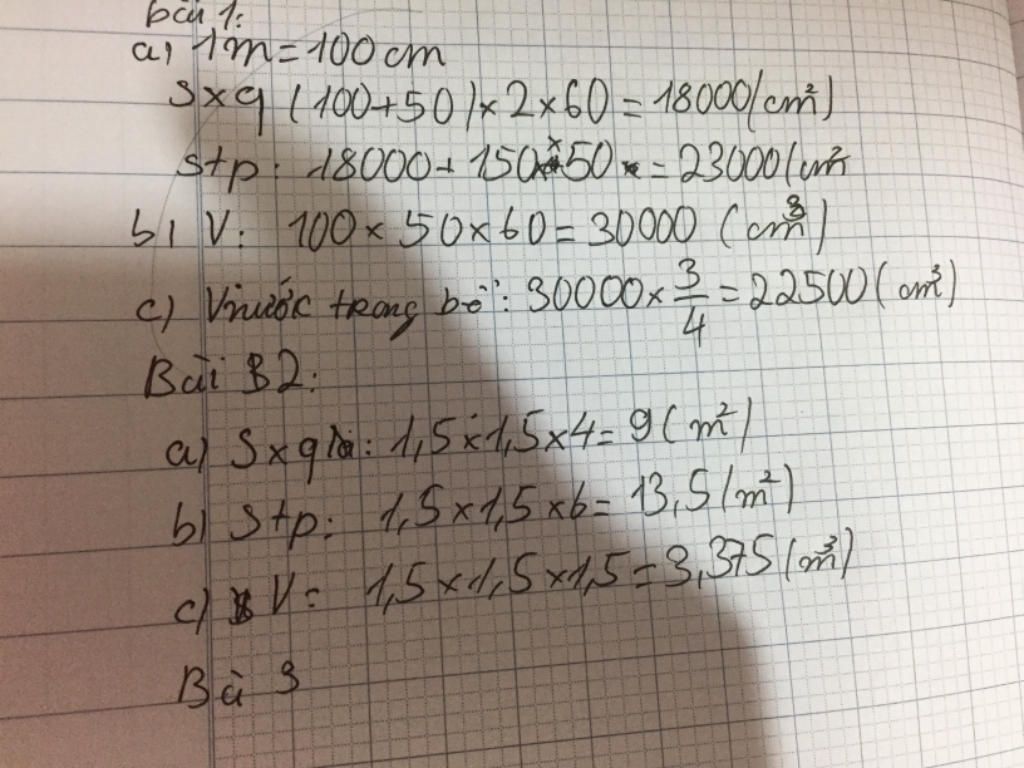 bài 1:
a, 1m = 100 cm
Sxq (100+50)×2×60 = 18000(cm²)
stp: 18000+ 150×50 = 23000(cm²
b) V: 100×50×60 = 30000 (cm³)
c) Vnước trong bể: 30000×3/4 = 22500(cm³)
Bài 2:
a) Sxq là: 1,5×1,5×4 = 9(m²)
b) Stp: 1,5×1,5×6 = 13,5(m²)
c) V: 1,5×1,5×1,5 = 3,375(m³)
Bà 3